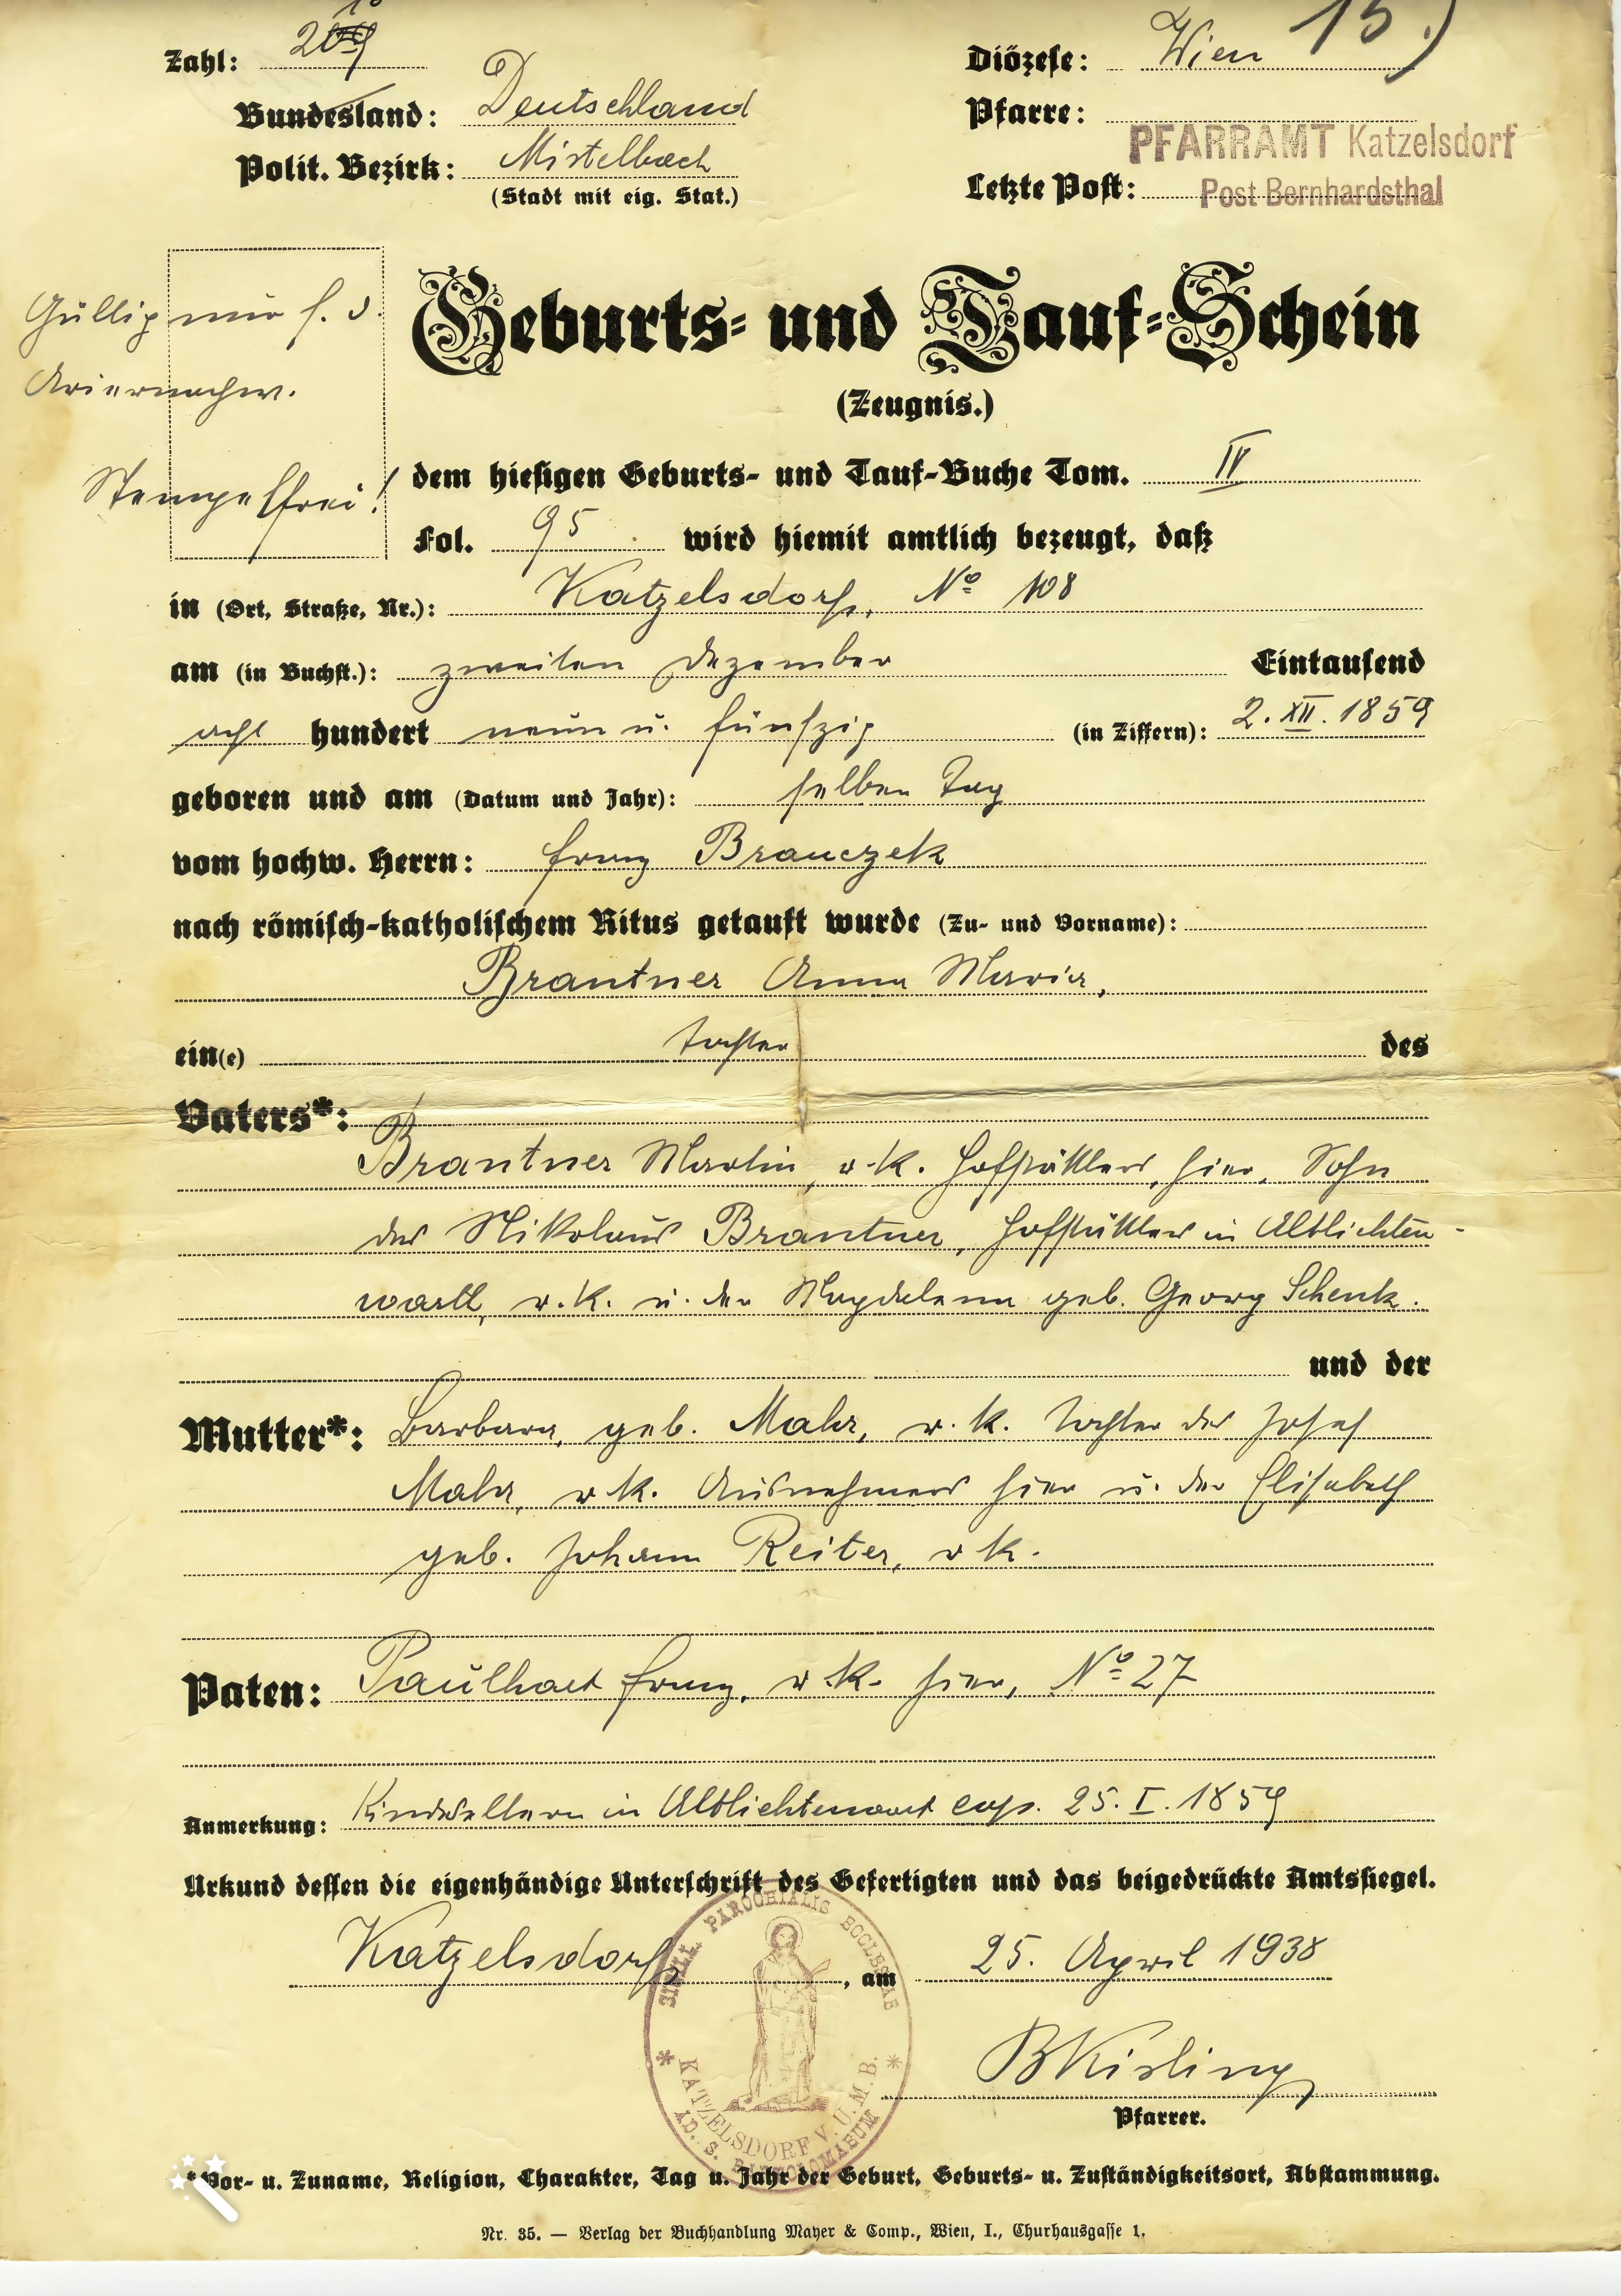 Zahl: 209 10
Diözese: Wien 15.)
Bundesland: Deutschland
Pfarre:
PFARRAMT Katzelsdorf
Polit. Bezirk: Mistelbach
(Stadt mit eig. Stat.)
Letzte Post: Post Bernhardsthal
Gültig nur f. d.
Ariernachw.
Stempelfrei!
Geburts- und Tauf-Schein
(Zeugnis.)
dem hiesigen Geburts- und Tauf-Buche Tom. IV
Fol. 95 wird hiemit amtlich bezeugt, daß
in (Ort, Straße, Nr.): Katzelsdorf, No 108
am (in Buchst.): zweiten Dezember Eintausend
acht hundert neun u. fünfzig (in Ziffern): 2. XII. 1859
geboren und am (Datum und Jahr): selben Tag
vom hochw. Herrn: Franz Brauczek
nach römisch-katholischem Ritus getauft wurde (Zu- und Vorname):
Brantner Anna Maria,
ein(e) Tochter des
Vaters*:
Brantner Martin, r.k. Hofstättlers, hier, Sohn
des Nikolaus Brantner, Hofstättlers in Altlichten-
wart, r.k. u. der Magdalena geb. Georg Schenk.
und der
Mutter*: Barbara, geb. Mahr, r.k. Tochter des Josef
Mahr, r.k. Ausnehmers hier u. der Elisabeth
geb. Johann Reiter, r.k.
Paten: Paulhart Franz, r.k. hier, No 27
Anmerkung: Kindseltern in Altlichtenwart cop. 25. I. 1859
Urkund dessen die eigenhändige Unterschrift des Gefertigten und das beigedrückte Amtssiegel.
Katzelsdorf, am 25. April 1938
SIGILL. PAROCHIALIS ECCLESIAE
* KATZELSDORF V. U. M. B. *
AD. S. BARTOLOMAEUM
BKisling
Pfarrer.
*Vor- u. Zuname, Religion, Charakter, Tag u. Jahr der Geburt, Geburts- u. Zuständigkeitsort, Abstammung.
Nr. 35. — Verlag der Buchhandlung Mayer & Comp., Wien, I., Churhausgasse 1.